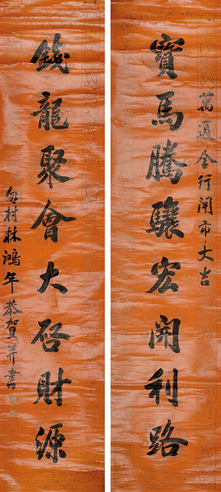 萬通金行開市大吉
寶馬騰驤宏開利路
錢龍聚會大啓財源
勿村林鴻年恭賀並書